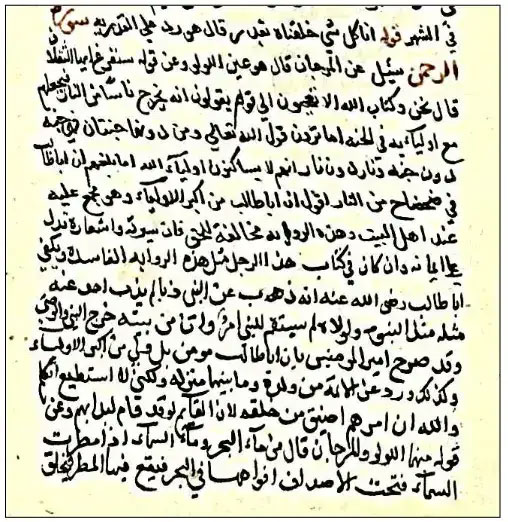 في الشهر قوله انا كل شي خلقناه بقدر قال هو رد على القدريه سورة
الرحمن سئل عن المرجان قال هو عين اللولو وعن قوله سنفرغ ايها الثقلان
قال نحن وكتاب الله الا تعجبون الى قوم يقولون انه يخرج ناسا من النار فيجعلهم
مع اولياءه في الجنه اما ترون قول الله تعالى ومن دونهما جنتان
دون جنه ونار دون نار انهم لا يساكنون اولياء الله اما بلغهم ان اباطالب
في ضحضاح من النار اقول ان اباطالب من اكبر الاولياء وهو مجمع عليه
عند اهل البيت وهذه الروايه مخالفة للحق فان سيرته واشعاره تدل
على ايمانه وان كان في كتاب هذا الرجل مثل هذه الروايه الفاسده ويكفي
اباطالب رضي الله عنه انه عن النبي ذبا لم يذب احد عنه
مثله ولولاه لم يستقم للنبي امرا من بيته خرج النبي والوصي
وقد صرح امير المومنين بان اباطالب مومن بل ولي من اكبر الاولياء
وكذلك ورد عن الائمة من ولده وما بينهما منزله ولكني لا استطيع اتكلم
والله ان امرهم اضيق من حلقه لان القايم لو قد قام لبدا بهم وعن
قوله منهما اللولو والمرجان قال من ماء البحر وماء السماء اذا امطرت
السماء فتحت الاصداف افواهها في البحر فيقع فيها المطر فيخلق